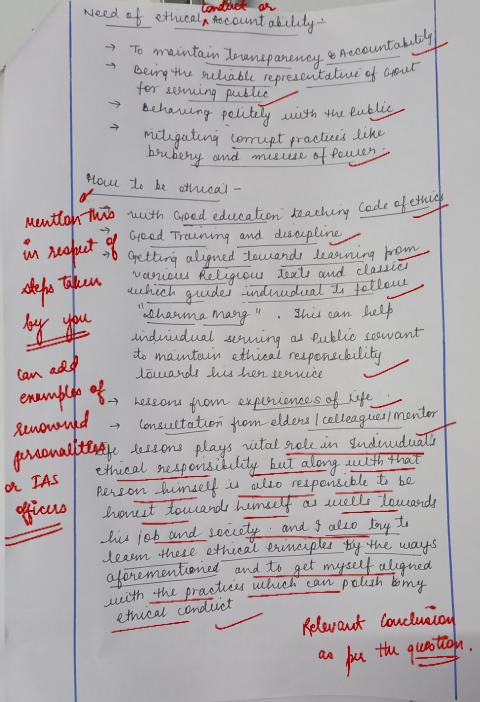 conduct or
Need of ethical Accountability -
→ To maintain Transparency & Accountability
→ Being the reliable representative of Govt
for serving public
→ Behaving politely with the Public
→ Mitigating corrupt practices like
bribery and misuse of Power.
How to be ethical -
→ with Good education teaching Code of ethics
→ Good Training and discipline
→ Getting aligned towards learning from
various Religious texts and classics
which guides individual to follow
"Dharma Marg". This can help
individual serving as Public servant
to maintain ethical responsibility
towards his her service
→ Lessons from experiences of life
→ Consultation from elders/colleagues/mentor
life lessons plays vital role in Individual's
ethical responsibility but along with that
Person himself is also responsible to be
honest towards himself as wells towards
his job and society. and I also try to
learn these ethical principles by the ways
aforementioned and to get myself aligned
with the practices which can polish my
ethical conduct
mention this
in respect of
steps taken
by you
can add
examples of
renowned
personalities
or IAS
officers
Relevant Conclusion
as per the question.